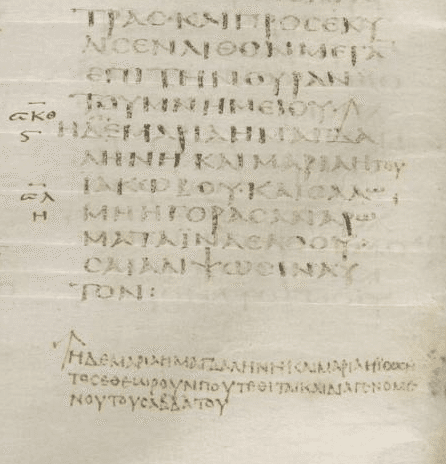 ΤΡΑϹ·ΚΑΙΠΡΟϹΕΚΥ
ΛΙϹΕΝΛΙΘΟΝΜΕΓΑ
ΕΠΙΤΗΝΘΥΡΑΝ
ΤΟΥΜΝΗΜΕΙΟΥ·
ΗΔΕΜΑΡΙΑΗΜΑΓΔΑ
ΛΗΝΗΚΑΙΜΑΡΙΑΗΤΟΥ
ΙΑΚΩΒΟΥ·ΚΑΙϹΑΛΩ
ΜΗΗΓΟΡΑϹΑΝΑΡΩ
ΜΑΤΑΪΝΑΕΛΘΟΥ
ϹΑΙΑΛΙΨΩϹΙΝΑΥ
ΤΟΝ:
ΗΔΕΜΑΡΙΑΗΜΑΓΔΑΛΗΝΗΚΑΙΜΑΡΙΑΗΪΩϹΗ
ΤΟϹΕΘΕΩΡΟΥΝΠΟΥΤΕΘΙΤΑΙΚΑΙΔΙΑΓΕΝΟΜΕ
ΝΟΥΤΟΥϹΑΒΒΑΤΟΥ